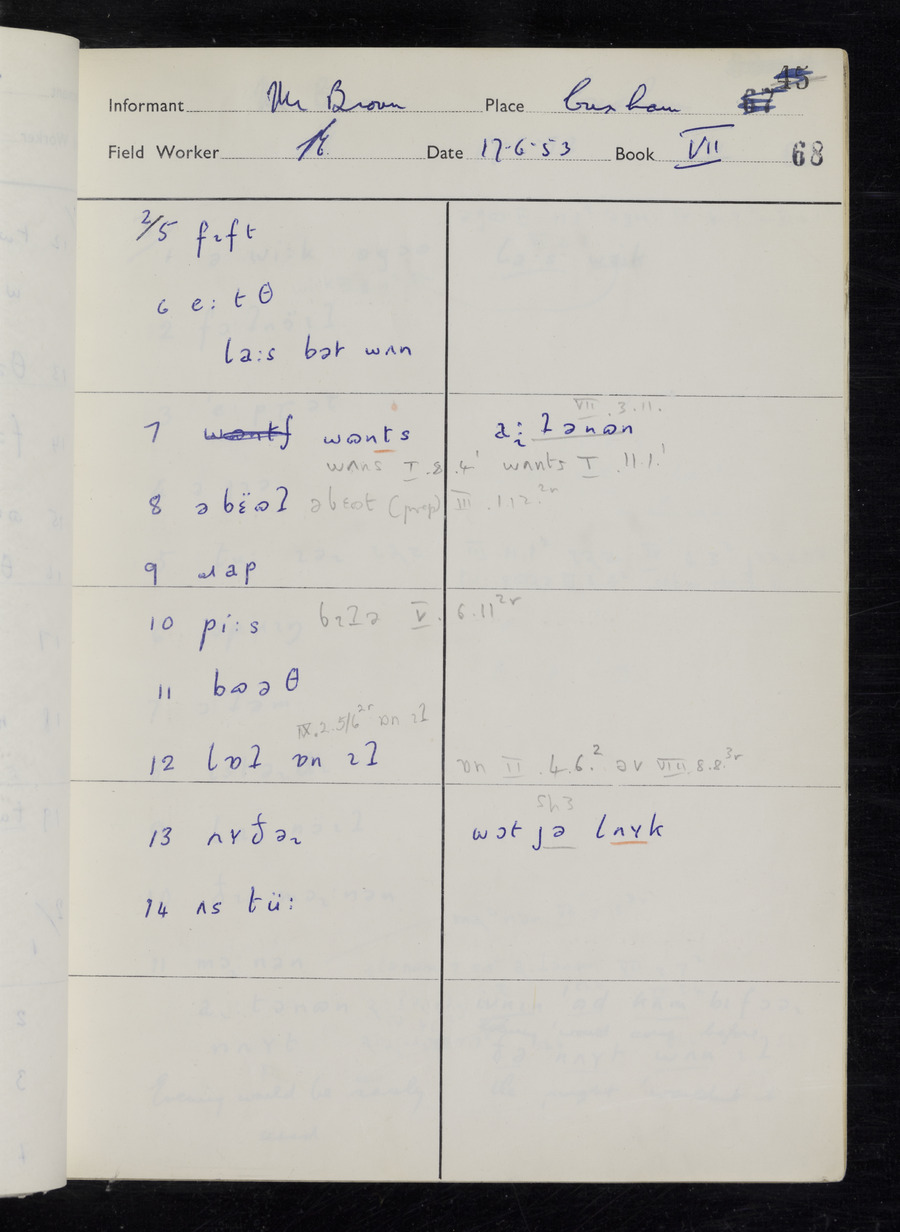 45
Informant Mr Brown Place Cuxham 67
Field Worker Date 17·6·53 Book VII 68
2/5 fɪft
6 e: tθ
la:s bət wʌn
VII .3.11.
7 wɒntʃ wɒnts
wʌns I .8.4¹ wʌnts I .11.1.¹
8 ə bɛ̈ɷʔ əbɛɷt (prep) III .1 12.²ʳ
9 ɹap
10 pi:s bɪʔə V. 6.11²ʳ
11 bɷə θ
IX.2.5/6²ʳ ɒn ɪʔ
12 lɒʔ ɒn ɪʔ ɒn II .4.6.² əv VIII .8.8.³ʳ
13 nɤðəɹ wɔt jə lʌɤk
14 ʌs tü: